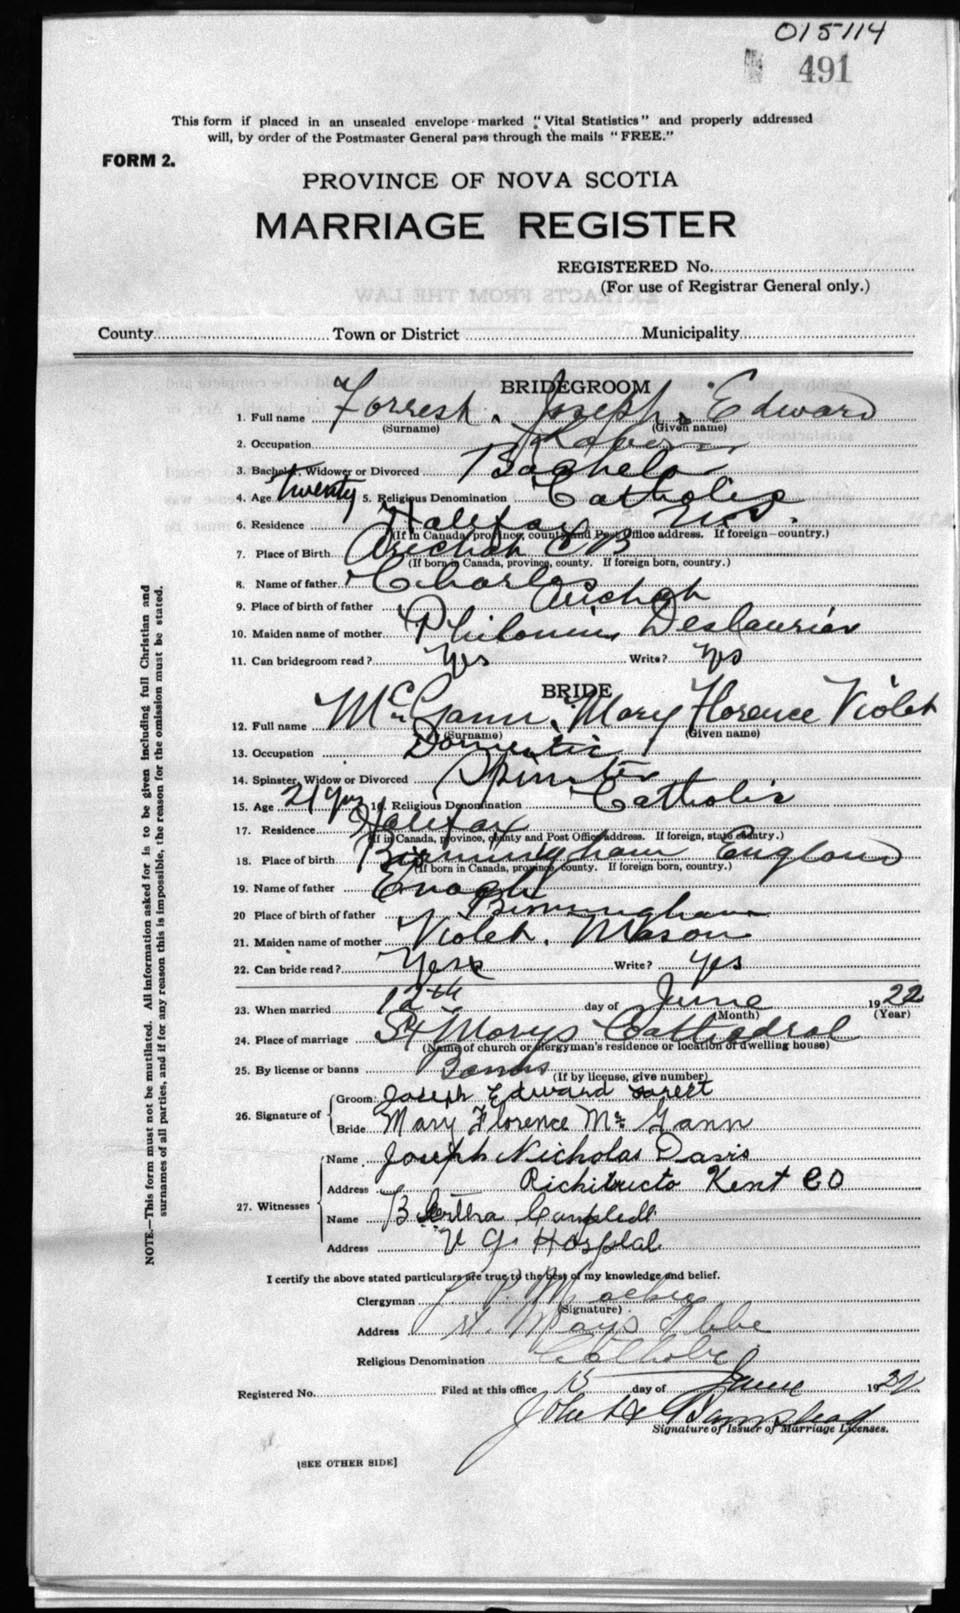 015114
491
This form if placed in an unsealed envelope marked "Vital Statistics" and properly addressed
will, by order of the Postmaster General pass through the mails "FREE."
FORM 2.
PROVINCE OF NOVA SCOTIA
MARRIAGE REGISTER
REGISTERED No.
(For use of Registrar General only.)
EXTRACTS FROM THE LAW
County Town or District Municipality
BRIDEGROOM
1. Full name Forrest, Joseph, Edward
(Surname) (Given name)
2. Occupation Labor
3. Bachelor, Widower or Divorced Bachelor
4. Age twenty 5. Religious Denomination Catholic
6. Residence Halifax N.S.
(If in Canada, province, county and Post Office address. If foreign—country.)
7. Place of Birth Arichat C B
(If born in Canada, province, county. If foreign born, country.)
8. Name of father Charles
9. Place of birth of father Arichat
10. Maiden name of mother Deslaurier
11. Can bridegroom read? Yes Write? Yes
BRIDE
12. Full name McGann, Mary Florence Violet
(Surname) (Given name)
13. Occupation Domestic
14. Spinster, Widow or Divorced Spinster
15. Age 21 yrs 16. Religious Denomination Catholic
17. Residence Halifax
(If in Canada, province, county and Post Office address. If foreign, state country.)
18. Place of birth Birmingham England
(If born in Canada, province, county. If foreign born, country.)
19. Name of father Enoch
20 Place of birth of father Birmingham
21. Maiden name of mother Violet. Mason
22. Can bride read? Yes Write? Yes
23. When married 12th day of June 1922
(Month) (Year)
24. Place of marriage St Marys Cathedral
(Name of church or clergyman's residence or location of dwelling house)
25. By license or banns Banns
(If by license, give number)
26. Signature of Groom: Joseph Edward Forest
Bride Mary Florence Mc Gann
27. Witnesses Name Joseph Nicholas Davis
Address Richibucto Kent CO
Name Bertha Campbell
Address V G Hospital
I certify the above stated particulars are true to the best of my knowledge and belief.
Clergyman
(Signature)
Address St. Marys Glebe
Religious Denomination Catholic
Registered No. Filed at this office 15 day of June 1922
Signature of Issuer of Marriage Licenses.
[SEE OTHER SIDE]
NOTE.—This form must not be mutilated. All information asked for is to be given including full Christian and
surnames of all parties, and if for any reason this is impossible, the reason for the omission must be stated.